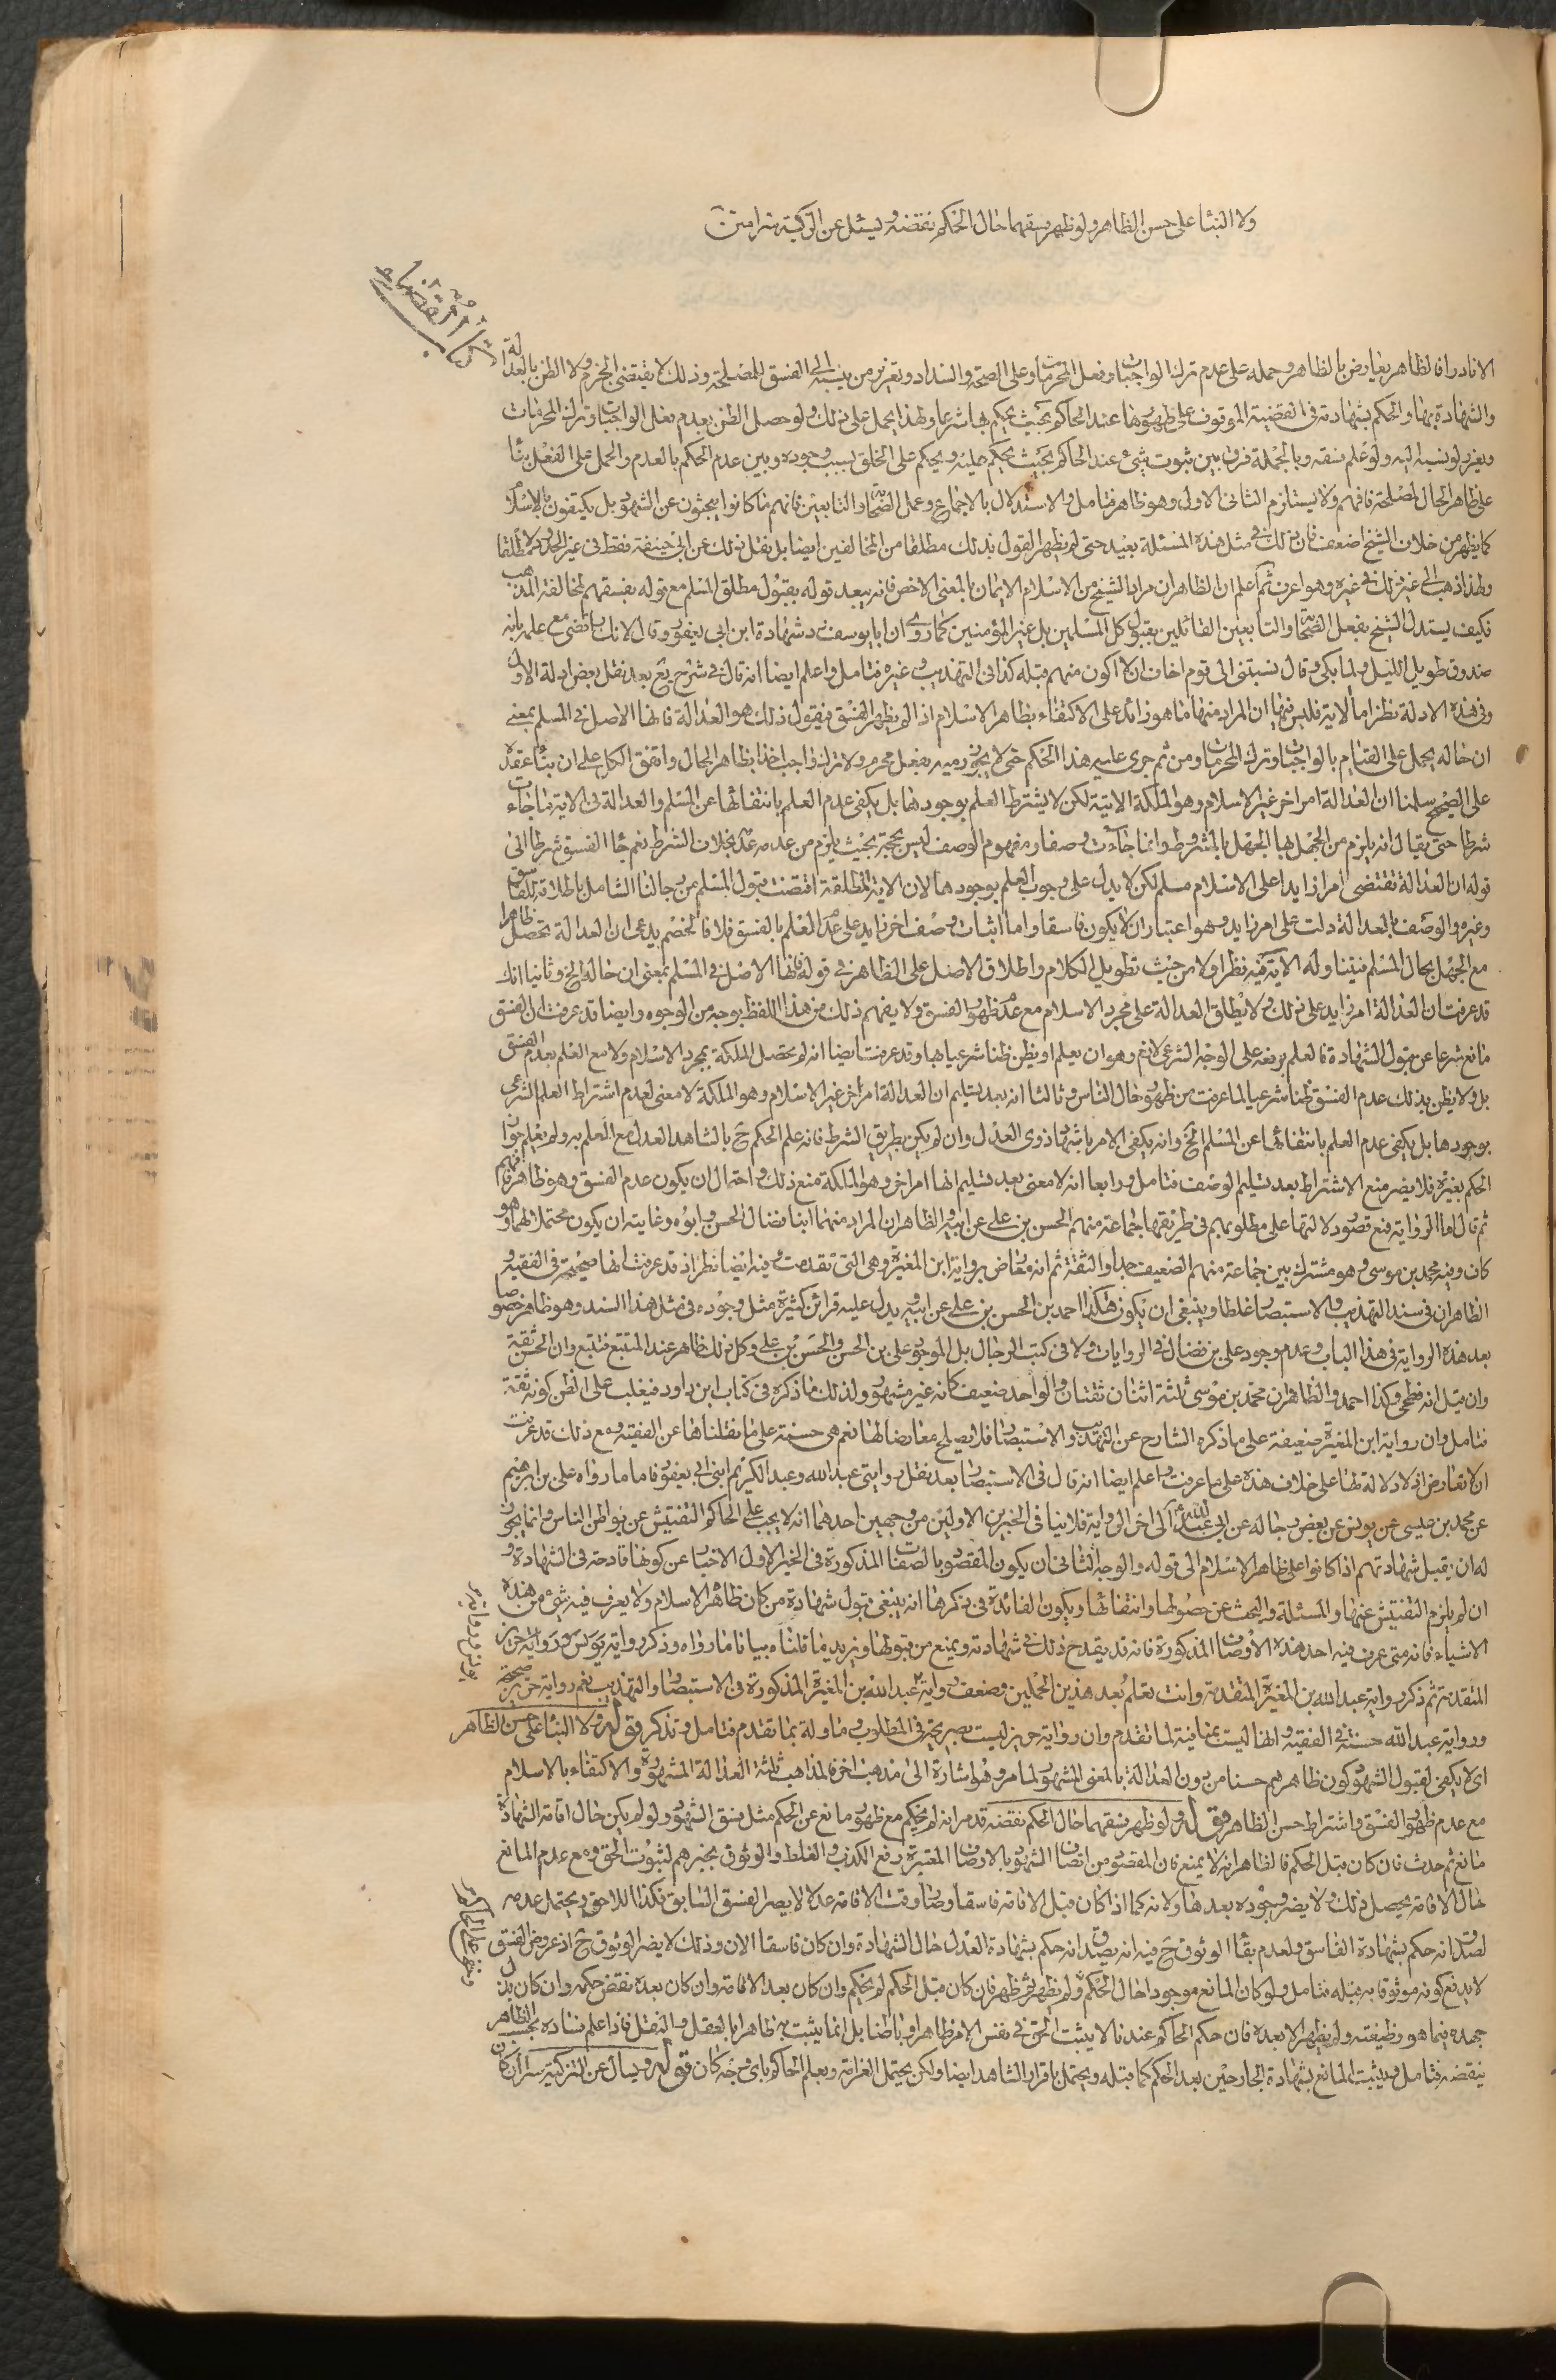 ولا البناء على حسن الظاهر ولو ظهر فسقهما حال الحكم نقضه ويسئل عن التزكية سرا
كتاب القضاء
الا نادرا فالظاهر يعارض بالظاهر وحمله على عدم ترك الواجبات وفعل المحرمات وعلى الصحة والسداد وتعزير من ينسبه الى الفسق للمصلحة وذلك لا يقتضى الجزم ولا الظن بالعدالة
والشهادة بها والحكم بشهادته فى القضية الموقوف على ظهورها عند الحاكم بحيث يحكم بها شرعا ولهذا يحمل على ذلك ولو حصل الظن بعدم فعل الواجبات وترك المحرمات
ويعزر لو نسبه اليه ولو علم فسقه وبالجملة فرق بين ثبوت شئ عند الحاكم بحيث يحكم عليه ويحكم على الخلق بسبب وجوده وبين عدم الحكم بالعدم والحمل على الفعل بناء
على ظاهر الحال لمصلحة فافهم ولا يستلزم الثانى الاول وهو ظاهر فتامل والاستدلال بالاجماع وعمل الصحابة والتابعين فانهم ما كانوا يبحثون عن الشهود بل يكتفون بالاسلام
كما يظهر من خلاف الشيخ اضعف فان ذلك فى مثل هذه المسئلة بعيد حتى لم يظهر القول بذلك مطلقا من المخالفين ايضا بل نقل ذلك عن ابى حنيفة فقط فى غير الحدود لا مطلقا
ولهذا ذهب الى غير ذلك فى غيره وهو اعرف ثم اعلم ان الظاهر ان مراد الشيخ من الاسلام الايمان بالمعنى الاخص فانه يبعد قوله بقبول مطلق المسلم مع قوله بفسقهم لمخالفة المذهب
فكيف يستدل الشيخ بفعل الصحابة والتابعين القائلين بقبول كل المسلمين بل غير المؤمنين كما روى ان ابا يوسف رد شهادة ابن ابى يعفور وقال لانك رافضى مع علمه بانه
صدوق طويل الليل ولما بكى وقال نسبتنى الى قوم اخاف ان لا اكون منهم قبله كذا فى التهذيب وغيره فتامل واعلم ايضا انه قال فى شرح يع بعد نقل بعض ادلة الاول
وفى هذه الادلة نظر اما الاية فليس فيها ان المراد منها ما هو زائد على الاكتفاء بظاهر الاسلام اذا لم يظهر الفسق فيقول ذلك هو العدالة فانها الاصل فى المسلم بمعنى
ان حاله يحمل على القيام بالواجبات وترك المحرمات ومن ثم جرى عليه هذا الحكم حتى لا يجوز رميه بفعل محرم ولا ترك واجب اخذا بظاهر الحال واتفق الكل على ان بناء عقده
على الصحيح سلمنا ان العدالة امر اخر غير الاسلام وهو الملكة الاتية لكن لا يشترط العلم بوجودها بل يكفى عدم العلم بانتفائها عن المسلم والعدالة فى الاية ما جاءت
شرطا حتى يقال انه يلزم من الجهل بها الجهل بالمشروط وانما جاءت وصفا ومفهوم الوصف ليس بحجة بحيث يلزم من عدمه عدمه بخلاف الشرط نعم جاء الفسق شرطا الى
قوله ان العدالة تقتضى امرا زايدا على الاسلام مسلم لكن لا يدل على وجوب العلم بوجودها لان الاية المطلقة اقتضت قبول المسلم من رجالنا الشامل باطلاقه للفاسق
وغيره والوصف بالعدالة دلت على امر زايد وهو اعتبار ان لا يكون فاسقا واما اثبات وصف اخر زايد على عدم العلم بالفسق فلا فالخصم يدعى ان العدالة تحصل ظاهرا
مع الجهل بحال المسلم فيتناوله الاية فيه نظر اولا من حيث تطويل الكلام واطلاق الاصل على الظاهر فى قوله فانها الاصل فى المسلم بمعنى ان حاله الخ وثانيا انك
قد عرفت ان العدالة امر زايد على ذلك ولا يطلق العدالة على مجرد الاسلام مع عدم ظهور الفسق ولا يفهم ذلك من هذا اللفظ بوجه من الوجوه وايضا قد عرفت ان الفسق
مانع شرعا عن قبول الشهادة فالعلم برفعه على الوجه الشرعى لازم وهو ان يعلم او يظن ظنا شرعيا بها وقد عرفت ايضا انه لم تحصل الملكة بمجرد الاسلام ولا مع العلم بعدم الفسق
بل ولا يظن بذلك عدم الفسق ظنا شرعيا لما عرفت من ظهور حال الناس وثالثا انه بعد تسليم ان العدالة امر اخر غير الاسلام وهو الملكة لا معنى لعدم اشتراط العلم الشرعى
بوجودها بل يكفى عدم العلم بانتفائها عن المسلم الخ وانه يكفى الامر باشهاد ذوى العدل وان لم يكن بطريق الشرط فانه علم الحكم ح بالشاهد العدل مع العلم به ولم يعلم جواز
الحكم بغيره فلا يضر منع الاشتراط بعد تسليم الوصف فتامل ورابعا انه لا معنى بعد تسليم انها امر اخر وهو الملكة منع ذلك واحتمال ان يكون عدم الفسق وهو ظاهر فافهم
ثم قال اما الرواية فمع قصور دلالتها على مطلوبهم فى طريقها جماعة منهم الحسن بن على عن ابيه والظاهر ان المراد منهما ابنا فضال الحسن وابوه وغايته ان يكون محتملا لهما وهو
كاف وفيه محمد بن موسى وهو مشترك بين جماعة منهم الضعيف جدا والثقة ثم انه معارض برواية ابن المغيرة وهى التى تقدمت وفيه ايضا نظر اذ قد عرفت انها صحيحة فى الفقيه و
الظاهر ان فى سند التهذيب والاستبصار غلطا وينبغى ان يكون هكذا احمد بن الحسن بن على عن ابيه يدل عليه قرائن كثيرة مثل وجوده فى مثل هذا السند وهو ظاهر خصوصا
بعد هذه الرواية فى هذا الباب وعدم وجود على بن فضال فى الروايات ولا فى كتب الرجال بل الموجود على بن الحسن والحسن بن على وكل ذلك ظاهر عند المتتبع فتتبع وان الحسن ثقة
وان قيل انه فطحى وكذا احمد والظاهر ان محمد بن موسى ثلثة اثنان ثقتان والواحد ضعيف كانه غير مشهور ولذلك ما ذكره فى كتاب ابن داود فيغلب على الظن كونه ثقة
فتامل وان رواية ابن المغيرة ضعيفة على ما ذكره الشارح عن التهذيب والاستبصار فلا يصلح معارضا لها نعم هى حسنة على ما نقلناها عن الفقيه ومع ذلك قد عرفت
ان لا تعارض اذ لا دلالة لها على خلاف هذه على ما عرفت واعلم ايضا انه قال فى الاستبصار بعد نقل روايتى عبد الله وعبد الكريم ابنى ابى يعفور فاما ما رواه على بن ابرهيم
عن محمد بن عيسى عن يونس عن بعض رجاله عن ابى عبد الله ع الى اخر الرواية فلا ينافى الخبرين الاولين من وجهين احدهما انه لا يجب على الحاكم التفتيش عن بواطن الناس وانما يجوز
له ان يقبل شهادتهم اذا كانوا على ظاهر الاسلام الى قوله والوجه الثانى ان يكون المقصود بالصفات المذكورة فى الخبر الاول الاخبار عن كونها قادحة فى الشهادة و
ان لم يلزم التفتيش عنها والمسئلة والبحث عن حصولها وانتفائها ويكون الفائدة فى ذكرها انه ينبغى قبول شهادة من كان ظاهره الاسلام ولا يعرف فيه شئ من هذه
الاشياء فانه متى عرف فيه احد هذه الاوصاف المذكورة فانه قد يقدح ذلك فى شهادته ويمنع من قبولها ويزيد ما قلناه بيانا ما رواه وذكر رواية يونس ورواية حريز
المتقدمة ثم ذكر رواية عبد الله بن المغيرة المتقدمة وانت تعلم بعد هذين الحملين وضعف رواية عبد الله بن المغيرة المذكورة فى الاستبصار والتهذيب نعم رواية حريز صحيحة
ورواية عبد الله حسنة فى الفقيه وانها ليست بمنافية لما تقدم وان رواية حريز ليست بصريحة فى المطلوب وماولة بما تقدم فتامل وتذكر قوله ولا البناء على حسن الظاهر
اى لا يكفى لقبول الشهود كون ظاهرهم حسنا من دون العدالة بالمعنى المشهور لما مر وهو اشارة الى مذهب اخر فالمذاهب ثلثة العدالة المشهورة والاكتفاء بالاسلام
مع عدم ظهور الفسق واشتراط حسن الظاهر قوله ولو ظهر فسقهما حال الحكم نقضه قد مر انه لم يحكم مع ظهور مانع عن الحكم مثل فسق الشهود ولو لم يكن حال اقامة الشهادة
مانع ثم حدث فان كان قبل الحكم فالظاهر انه لا يمنع فان المقصود من اتصاف الشهود بالاوصاف المعتبرة رفع الكذب والغلط والوثوق بخبرهم لثبوت الحق ومع عدم المانع
حال الاقامة يحصل ذلك ولا يضر وجوده بعدها ولانه كما اذا كان قبل الاقامة فاسقا وصار وقت الاقامة عدلا لا يضر الفسق السابق فكذا اللاحق ويحتمل عدمه
لصدق انه حكم بشهادة الفاسق ولعدم بقاء الوثوق ح فيه انه يصدق انه حكم بشهادة العدل حال الشهادة وان كان فاسقا الان وذلك لا يضر الوثوق ح اذ عروض الفسق
لا يدفع كونه موثوقا به قبله فتامل ولو كان المانع موجودا حال الحكم ولم يظهر ثم ظهر فان كان قبل الحكم لم يحكم وان كان بعد الاقامة وان كان بعده نقض حكمه وان كان بذل
جهده فيما هو وظيفته ولم يظهر الا بعده فان حكم الحاكم عندنا لا يثبت الحق فى نفس الامر ظاهرا وباطنا بل انما يثبت به ظاهرا بالعقل والنقل فاذا علم فساده بحسب الظاهر
ينقضه فتامل ويثبت المانع بشهادة الجارحين بعد الحكم كما قبله ويحتمل باقرار الشاهد ايضا ولكن يحتمل الغرامة وبعلم الحاكم باى وجه كان قوله ويسال عن التزكية سرا ان كان